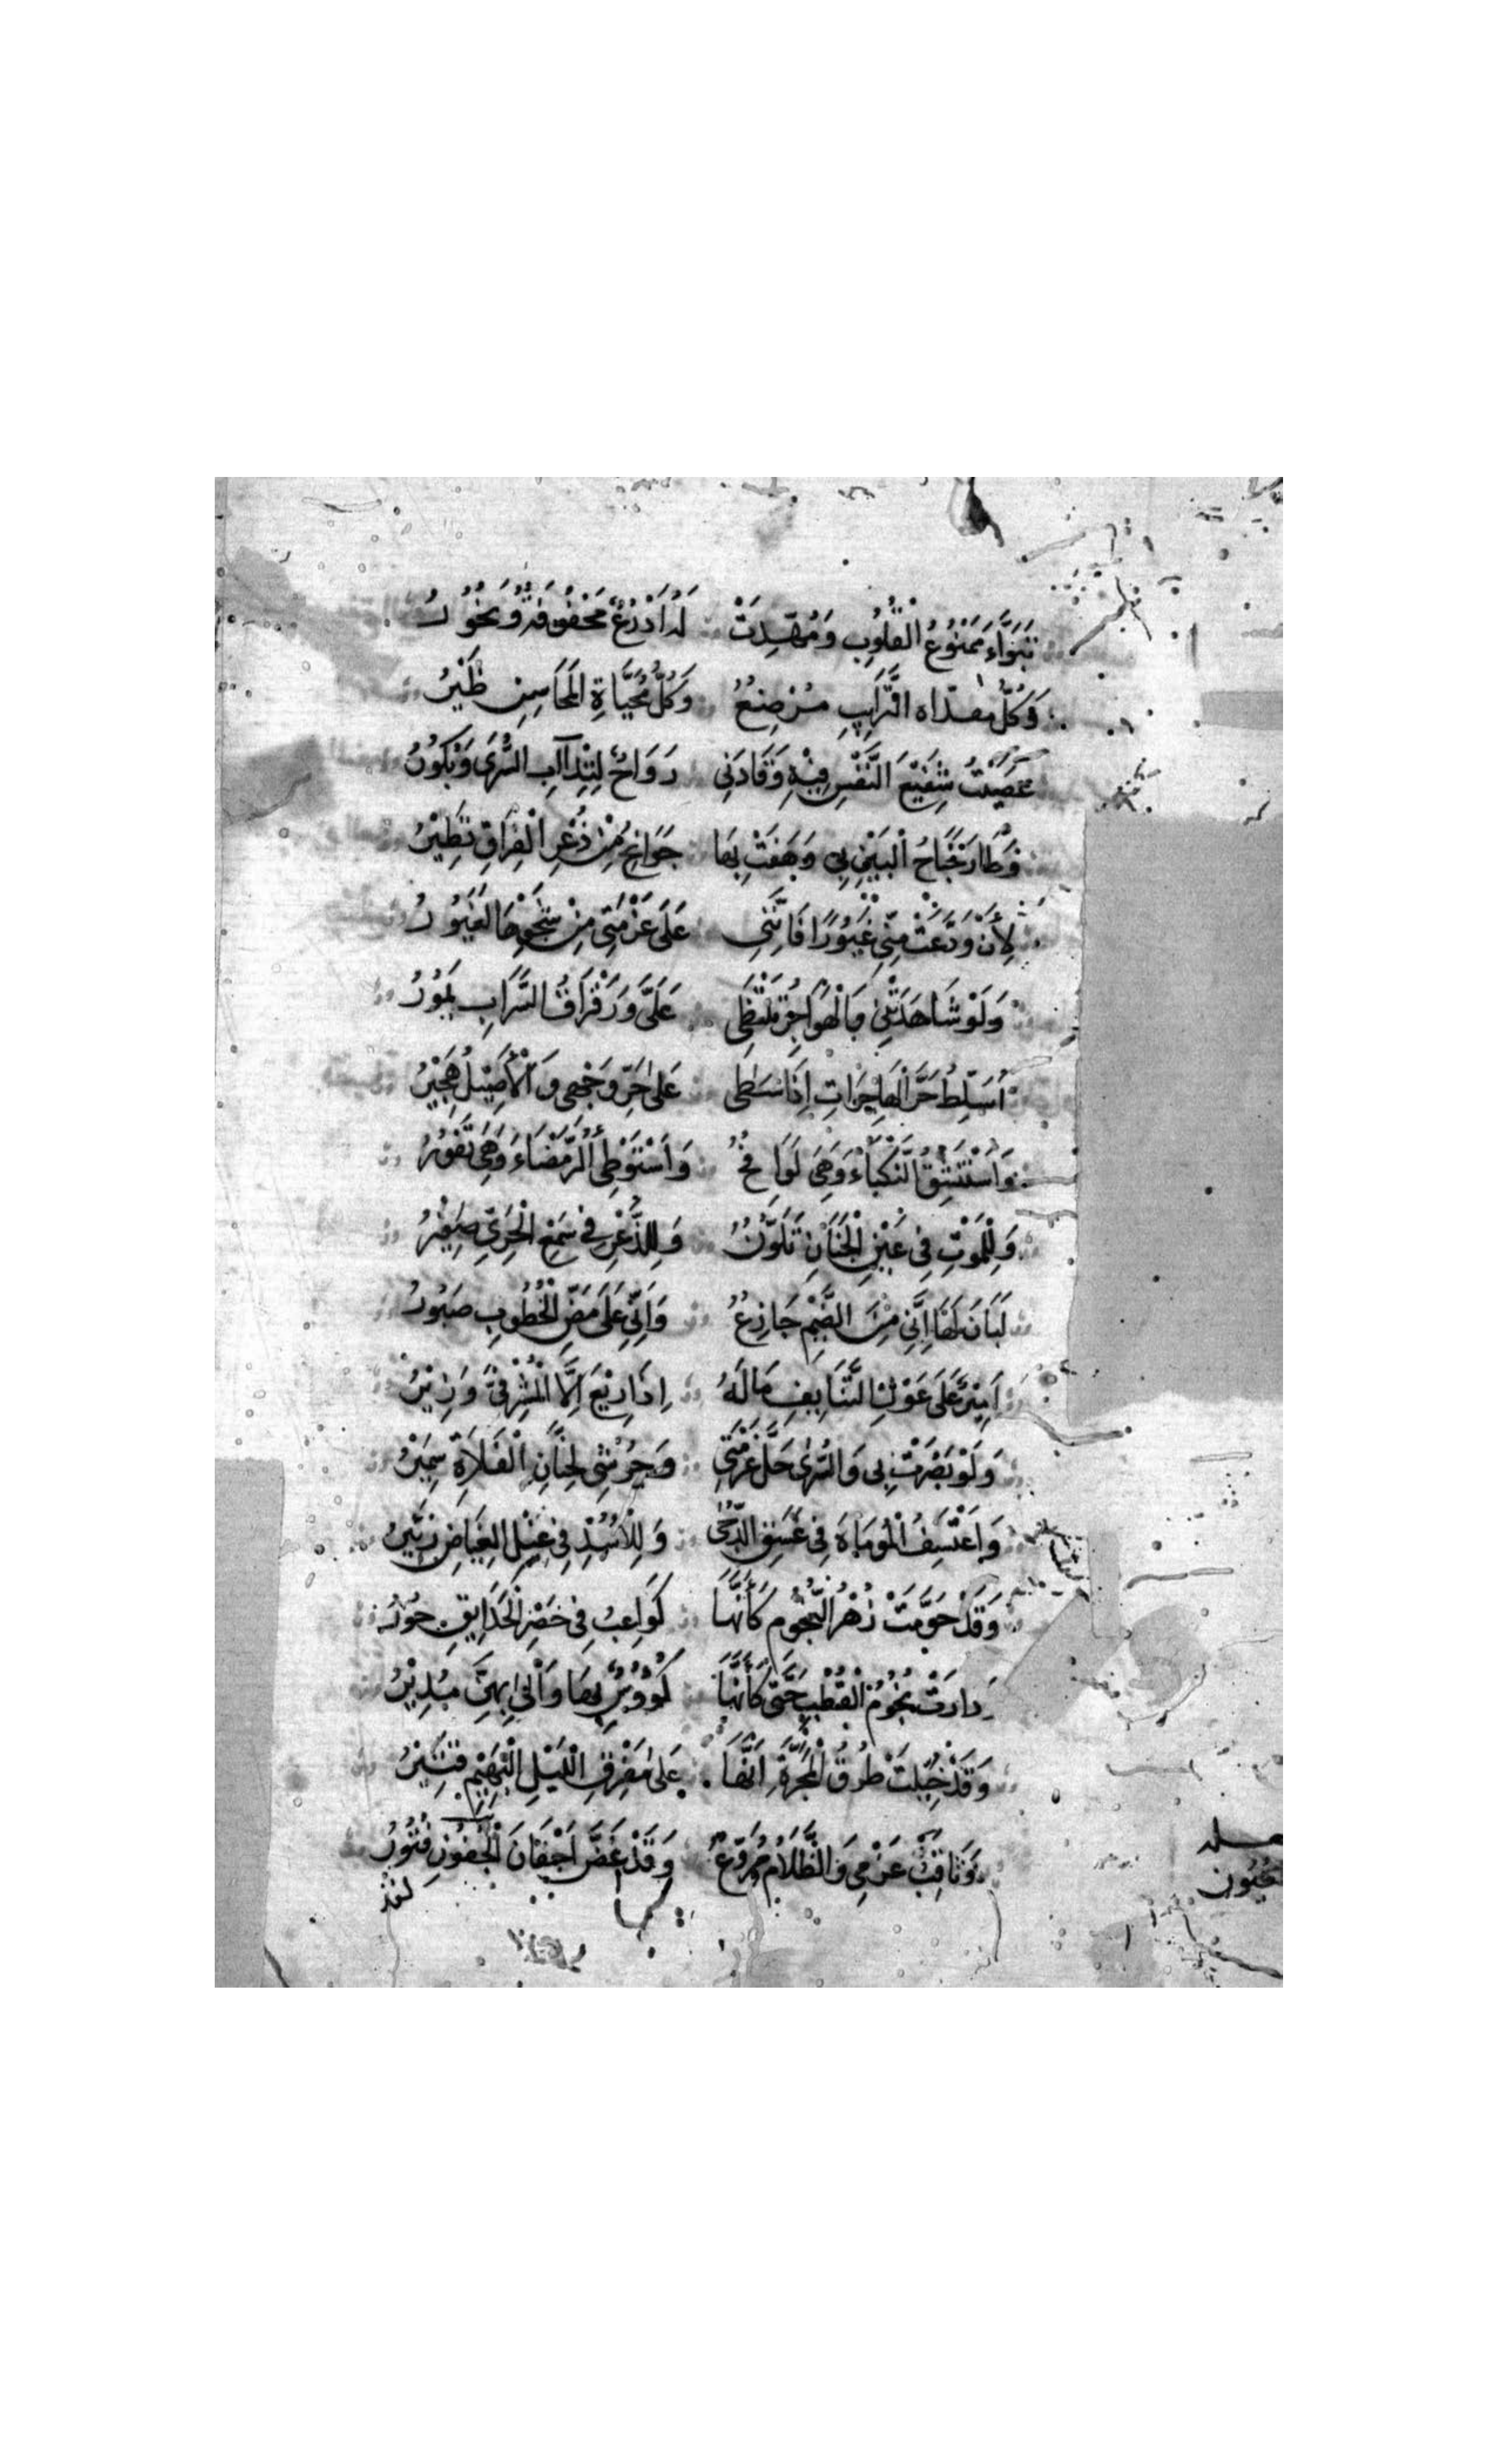 تَبَوَّاءَ مَمْنُوعُ الْقُلُوبِ وَمُهِّدَتْ لَهُ اَذْرُعٌ مَحْفُوفَةٌ وَنُحُوْرُ
وَكُلُّ مفدّاه التَّرَايِبِ مُرْضِعٌ وَكُلُّ مُحَيَّاةِ الْمَحَاسِنِ ظَيْرُ
عَصَيْتُ شَفِيْعَ النَّفْسِ فِيْهِ وَقَادَنِى رَوَاحٌ لِتِدْآبِ السُّرَى وَبُكُوْرُ
وَطَارَ جَنَاحُ الْبَيْنِ بِى وَهَفَتْ بِهَا جَوَانِحُ مِنْ ذُعْرِ الْفِرَاقِ تَطِيْرُ
لَاِنْ وَدَّعَتْ مِنِّى غَيُوْرًا فَاِنَّنِى عَلَى عَزْمَتِى مِنْ شَجْوِهَا لَغَيُوْرُ
وَلَوْ شَاهَدَتْنِى وَالْهَوَاجِرُ تَلْتَظِى عَلَىَّ وَرَقْرَاقُ السَّرَابِ يَمُوْرُ
اُسَلِّطُ حَرَّ الْهَاجِرَاتِ اِذَا سَطَى عَلَى حَرِّ وَجْهِى وَالْأَصِيْلُ هَجِيْرُ
وَاَسْتَنْشِقُ النَّكْبَاءَ وَهِىَ لَوَافِحٌ وَاَسْتَوْطِئُ الرَّمْضَاءَ وَهِىَ تَفُوْرُ
وَلِلْمَوْتِ فِى عَيْنِ الْجَبَانِ تَلَوُّنٌ وَلِلذُّعْرِ فِى سَمْعِ الْجَرِىِّ صَفِيْرُ
لَبَانَ لَهَا اِنَّى مِنَ الضَّيْمِ جَازِعٌ وَاَنِّى عَلَى مَضِّ الْخُطُوبِ صَبُوْرُ
اَمِيْرٌ عَلَى غَوْلِ التَّنَايِفِ مَا لَهُ اِذَا رِيْعَ اِلَّا الْمَشْرَفِىَّ وَزِيْرُ
وَلَوْ بَصُرَتْ بِى وَالسُّرَى جَلُّ عَزْمَتِى وَجَرْسِى لِجِنَّانِ الْفَلَاةِ سَمِيْرُ
وَاَعْتَسِفُ الْمَوْمَاةَ فِى غَسَقِ الدُّجَى وَلِلْاُسْدِ فِى غِيْلِ الْغِيَاضِ زَئِيْرُ
وَقَدْ حَوَّمَتْ زُهْرُ النُّجُوْمِ كَأَنَّهَا كَوَاعِبُ فِى خُضْرِ الْحَدَايِقِ حُوْرُ
وَدَارَتْ نُجُوْمُ الْقُطْبِ حَتَّى كَأَنَّهَا كُؤُوْسٌ مَهَا وَالَى بِهِنَّ مُدِيْرُ
وَقَدْ خُيِّلَتْ طُرُقُ الْمَجَرَّةِ اَنَّهَا عَلَى مَفْرِقِ اللَّيْلِ الْبَهِيْمِ قَتِيْرُ
وَثَاقِبُ عَزْمِى وَالظَّلَامُ مُرَوِّعٌ وَقَدْ غَضَّ اَجْفَانَ الْجُفُونِ فُتُوْرُ
لقد